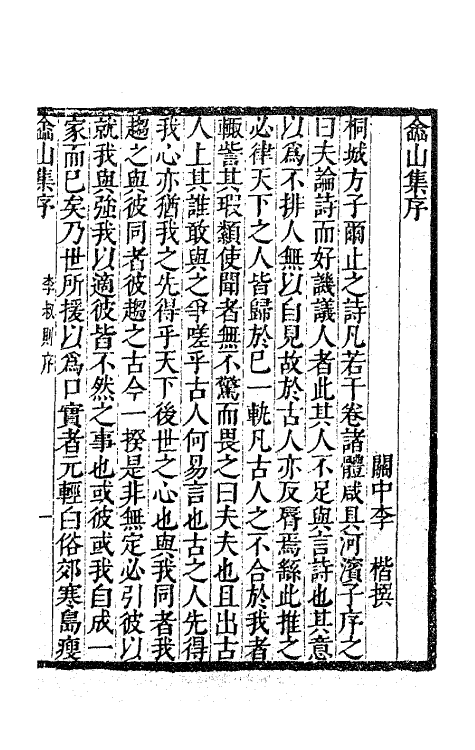 嵞山集序
關中李　楷撰
桐城方子爾止之詩凡若干卷諸體咸具河濱子序之
曰夫論詩而好譏議人者此其人不足與言詩也其意
以爲不排人無以自見故於古人亦反脣焉繇此推之
必律天下之人皆歸於巳一軌凡古人之不合於我者
輙訾其瑕纇使聞者無不驚而畏之曰夫夫也且出古
人上其誰敢與之爭嗟乎古人何易言也古之人先得
我心亦猶我之先得乎天下後世之心也與我同者我
趨之與彼同者彼趨之古今一揆是非無定必引彼以
就我與強我以適彼皆不然之事也或彼或我自成一
家而巳矣乃世所援以爲口實者元輕白俗郊寒島瘦
嵞山集序
李叔則序
一